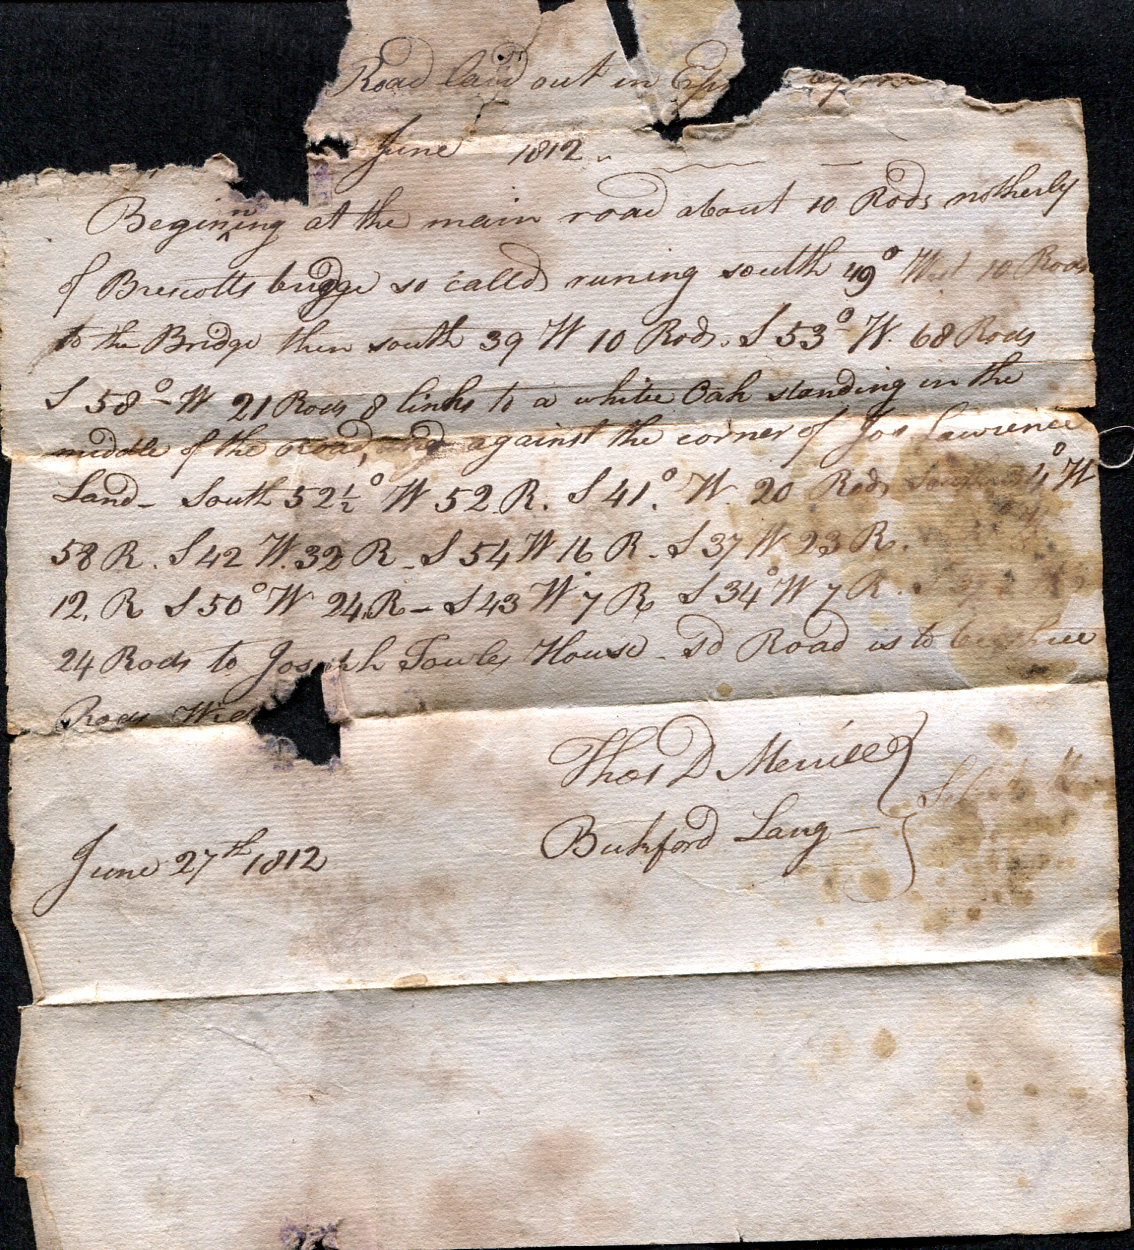 Road laid out in Ep
June 1812
Beginning at the main road about 10 Rods notherly
of Brescotts bridge so called runing south 49° West 10 Rods
to the Bridge then south 39 W 10 Rods. S 53° W. 68 Rods
S 58° W 21 Rods 8 links to a white Oak standing in the
middle of the road, and against the corner of Jos Lawrence
Land - South 52½° W 52 R. S 41° W 20 Rods South 34° W
58 R. S 42 W. 32 R - S 54 W 16 R - S 37 W 23 R.
12. R S 50° W 24 R - S 43 W 7 R S 34° W 7 R.
24 Rods to Joseph Towles House - sd Road is to be three
Rods Wid
Thos D Merrill
Bickford Lang
June 27th 1812